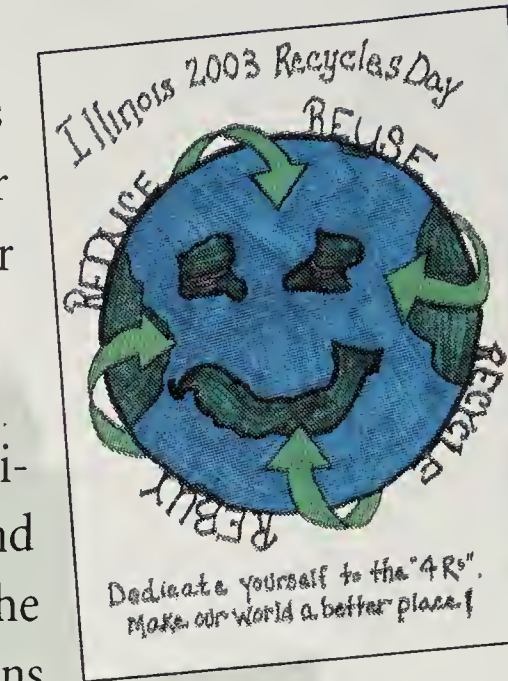 Illinois 2003 Recycles Day
REDUCE
REUSE
RECYCLE
REBUY
Dedicate yourself to the "4 Rs".
Make our world a better place!
s
r
r
i-
nd
he
ns